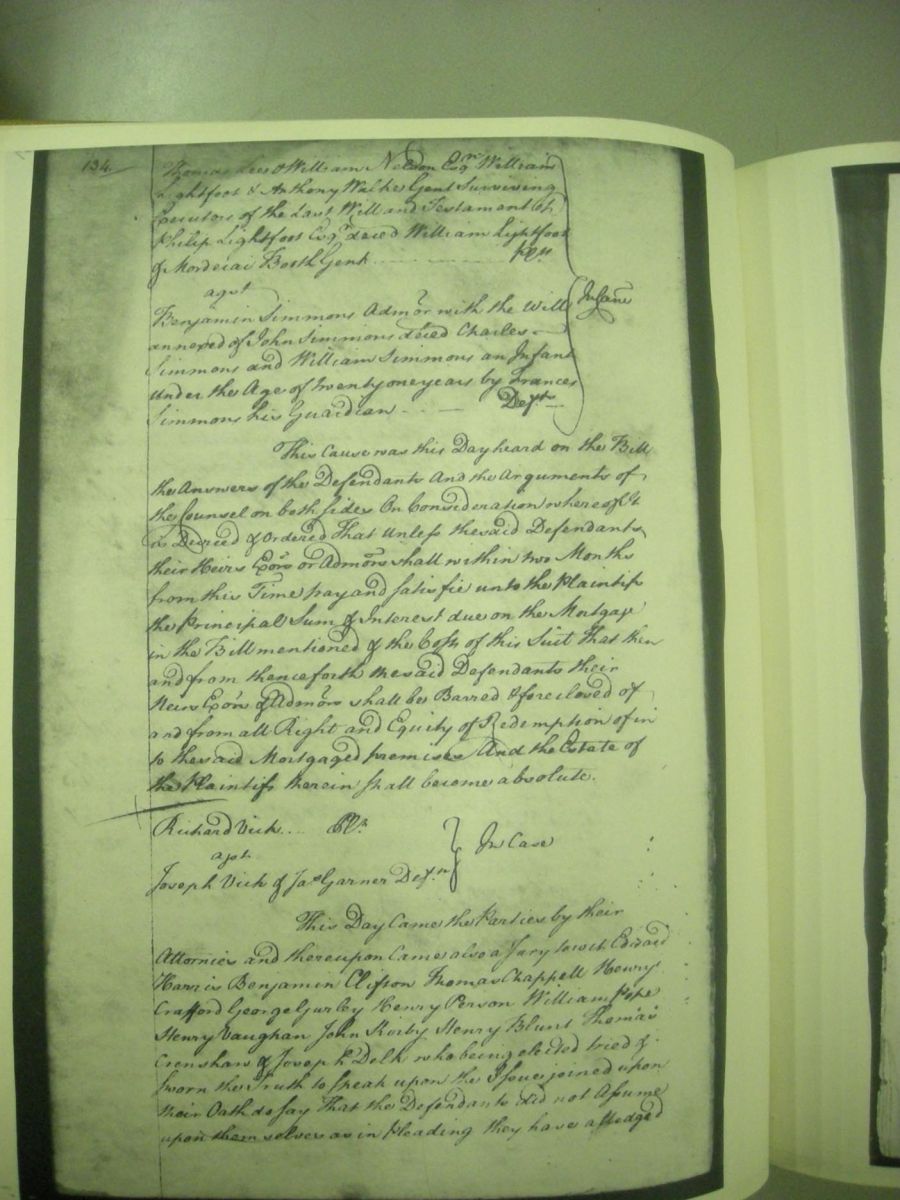 134
Thomas Lee & William Nelson Esqr. William
Lightfoot & Anthony Walke Gent Surviving
Executors of the Last Will and Testament of
Philip Lightfoot Esqr. deced William Lightfoot
& Mordecai Booth Gent Plts
agst
Benjamin Simmons Admor with the Will
annexed of John Simmons deced Charles
Simmons and William Simmons an Infant
under the Age of twenty one years by Frances
Simmons his Guardian Defts
In Canc
This Cause was this Day heard on the Bill
the Answers of the Defendants And the Arguments of
the Counsel on both sides On Consideration whereof It
is Decreed & Ordered That unless the said Defendants
their Heirs Exors or Admors shall within two Months
from this Time pay and satisfie unto the Plaintifs
the Principal Sum & Interest due on the Mortgage
in the Bill mentioned & the Costs of this Suit that then
and from thenceforth the said Defendants their
Heirs Exors & Admors shall be Barred & foreclosed of
and from all Right and Equity of Redemption of in
to the said Mortgaged premises And the Estate of
the Plaintifs therein shall become absolute.
Richard Vick Plt.
agst
Joseph Vick & Jas Garner Defts
In Case
This Day Came the Parties by their
Attornies and thereupon Came also a Jury towit Edward
Harris Benjamin Clifton Thomas Chappell Henry
Crafford George Gurley Henry Person William Pope
Henry Vaughan John Kirby Henry Blunt Thomas
Crenshaw & Joseph Delk who being elected tried &
sworn the Truth to speak upon the Issue joined upon
their Oath do say That the Defendants did not Assume
upon themselves as in Pleading they have alledged